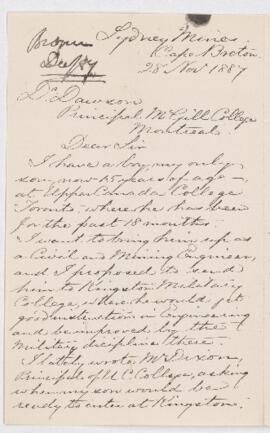 Brown
Dec/87
Sydney Mines
Cape Breton
28 Nov 1887
Dr Dawson
Principal McGill College
Montreal
Dear Sir
I have a boy, my only
son, now 15 years of age –
at Upper Canada College
Toronto – where he has been
for the past 18 months.
I want to bring him up as
a Civil and Mining Engineer,
and I proposed to send
him to Kingston Military
College, where he would get
good instruction in Engineering
and be improved by the
Military discipline there.
I lately wrote Mr Dixon,
Principal of U. C. College, asking
when my son would be
ready to enter at Kingston.